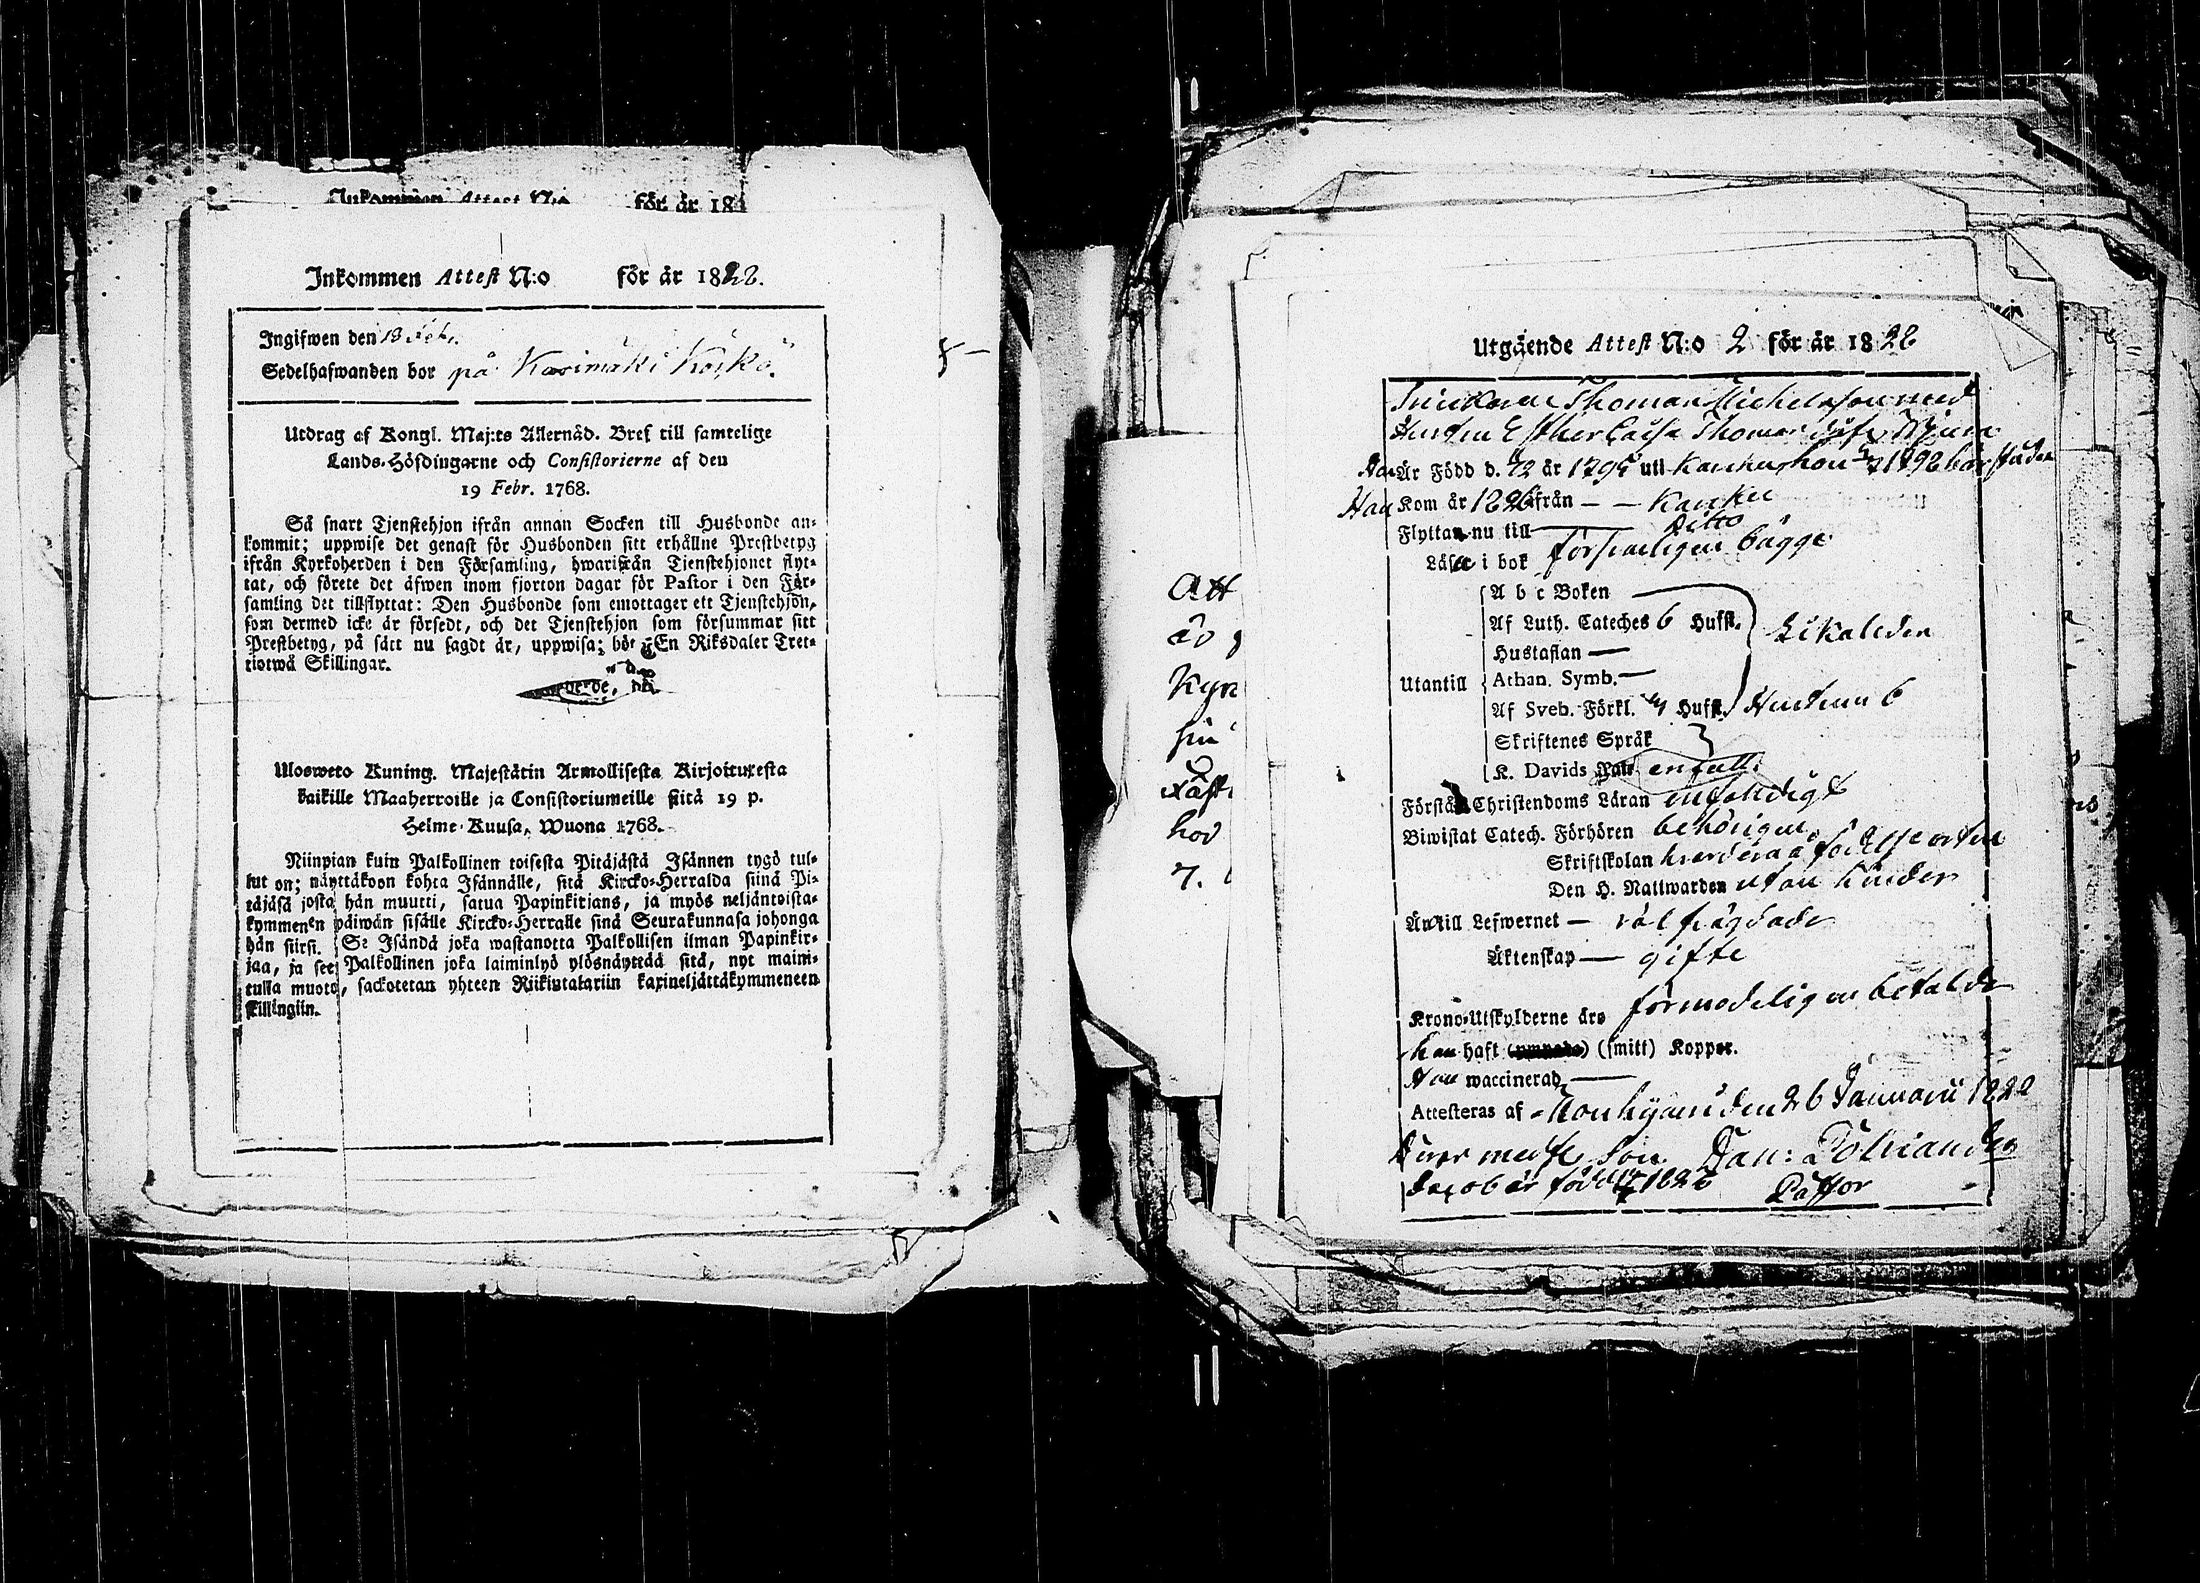 Inkommen Attest N:o för år 18
Inkommen Attest N:o för år 1822.
Ingifwen den 13 Feb.
Sedelhafwanden bor på Karimäki Köikö.
Utdrag af Kongl. Maj:ts Allernåd. Bref till samtelige
Lands-Höfdingarne och Consistorierne af den
19 Febr. 1768.
Så snart Tjenstehjon ifrån annan Socken till Husbonde an-
kommit; uppwise det genast för Husbonden sitt erhållne Prestbetyg
ifrån Kyrkoherden i den Församling, hwarifrån Tjenstehjonet flyt-
tat, och förete det äfwen inom fjorton dagar för Pastor i den För-
samling det tillflyttat: Den Husbonde som emottager ett Tjenstehjon,
som dermed icke är försedt, och det Tjenstehjon som försummar sitt
Prestbetyg, på sätt nu sagdt är, uppwisa; böte En Riksdaler Tret-
tiotwå Skillingar.
Ulosweto Kuning. Majestätin Armollisesta Kirjoituxesta
kaikille Maaherroille ja Consistoriumeille siitä 19 p.
Helme-Kuusa, Wuona 1768.
Niinpian kuin Palkollinen toisesta Pitäjästä Isännen tygö tul-
lut on; näyttäkoon kohta Isännälle, sitä Kircko-Herralda siinä Pi-
täjäsä josta hän muutti, satua Papinkirjans, ja myös neljäntoista-
kymmenen päiwän sisälle Kircko-Herralle siinä Seurakunnasa johonga
hän siirsi. Se Isändä joka wastanotta Palkollisen ilman Papinkir-
jaa, ja see Palkollinen joka laiminlyö ylösnäyttää sitä, nyt maini-
tulla muoto, sackotetan yhteen Riikintalariin kaxineljättäkymmeneen
skillingiin.
Att
Kyr
hov
7.
Utgående Attest N:o 2 för år 1822
Thomas Michelsson med
Hustru Esther Caisa Thomasdotter
Är Född d. är 1795 uti Kankas hon 1792 här städes
Han Kom år 1822 från — — Kanka
Flyttar nu till ——— Ditto
Läsa i bok försvarligen bägge
A b c Boken
Af Luth. Cateches 6 Hufst.
Likaleden
Hustaflan —
Utantill Athan. Symb. —
Af Sveb. Förkl. Hufst. Hustrun 6
Skriftenes Språk
K. Davids enfalli
Förstå Christendoms Läran enfaldigt
Biwistat Catech. Förhören behörigen
Skriftskolan födelse orten
Den H. Nattwarden utan hinder
Än till Lefwernet — väl frägdade
Äktenskap — gifte
Krono-Utskylderne äro förmodeligen betalde
han haft (smitt) Koppor.
Hon waccinerad ——
Attesteras af den 26 Januarii 1822
deras medf. Son Dan: Pölviander
Jacob är född 1820 Pastor